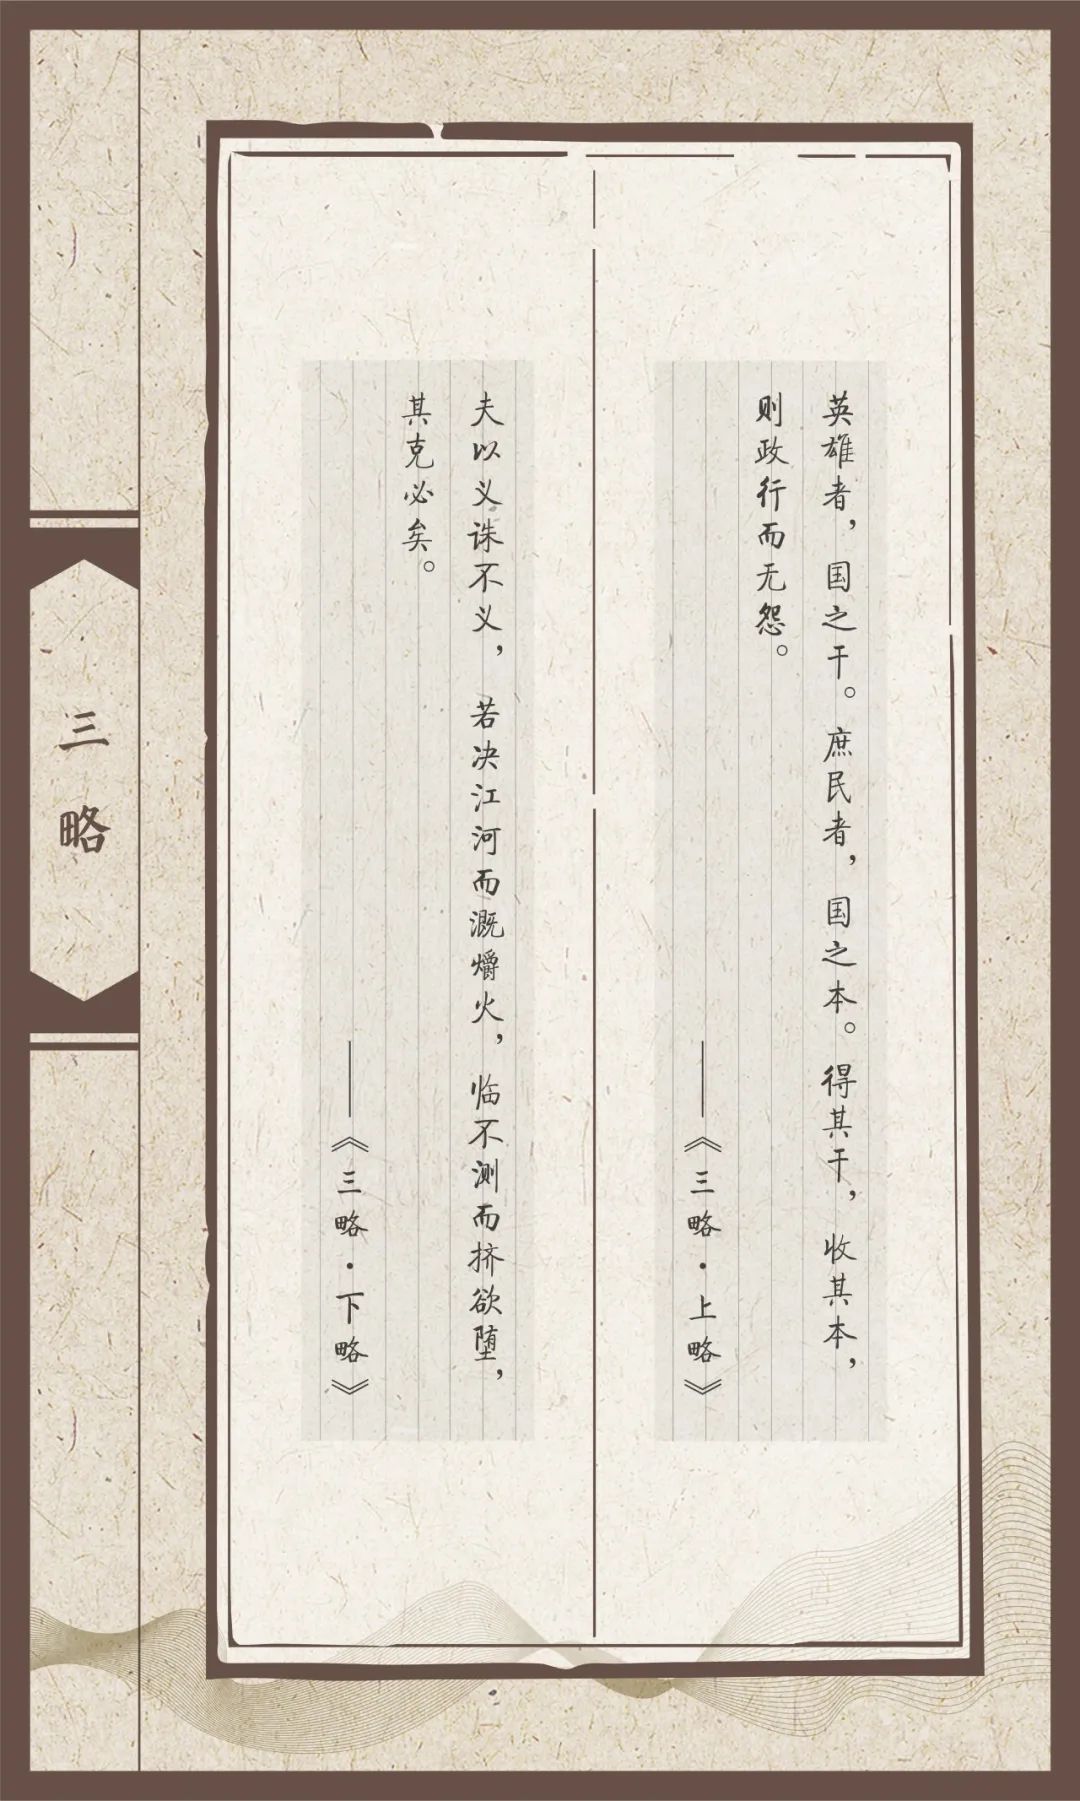 英雄者，国之干。庶民者，国之本。得其干，收其本，
则政行而无怨。
——《三略·上略》
夫以义诛不义，若决江河而溉爝火，临不测而挤欲堕，
其克必矣。
——《三略·下略》
三略